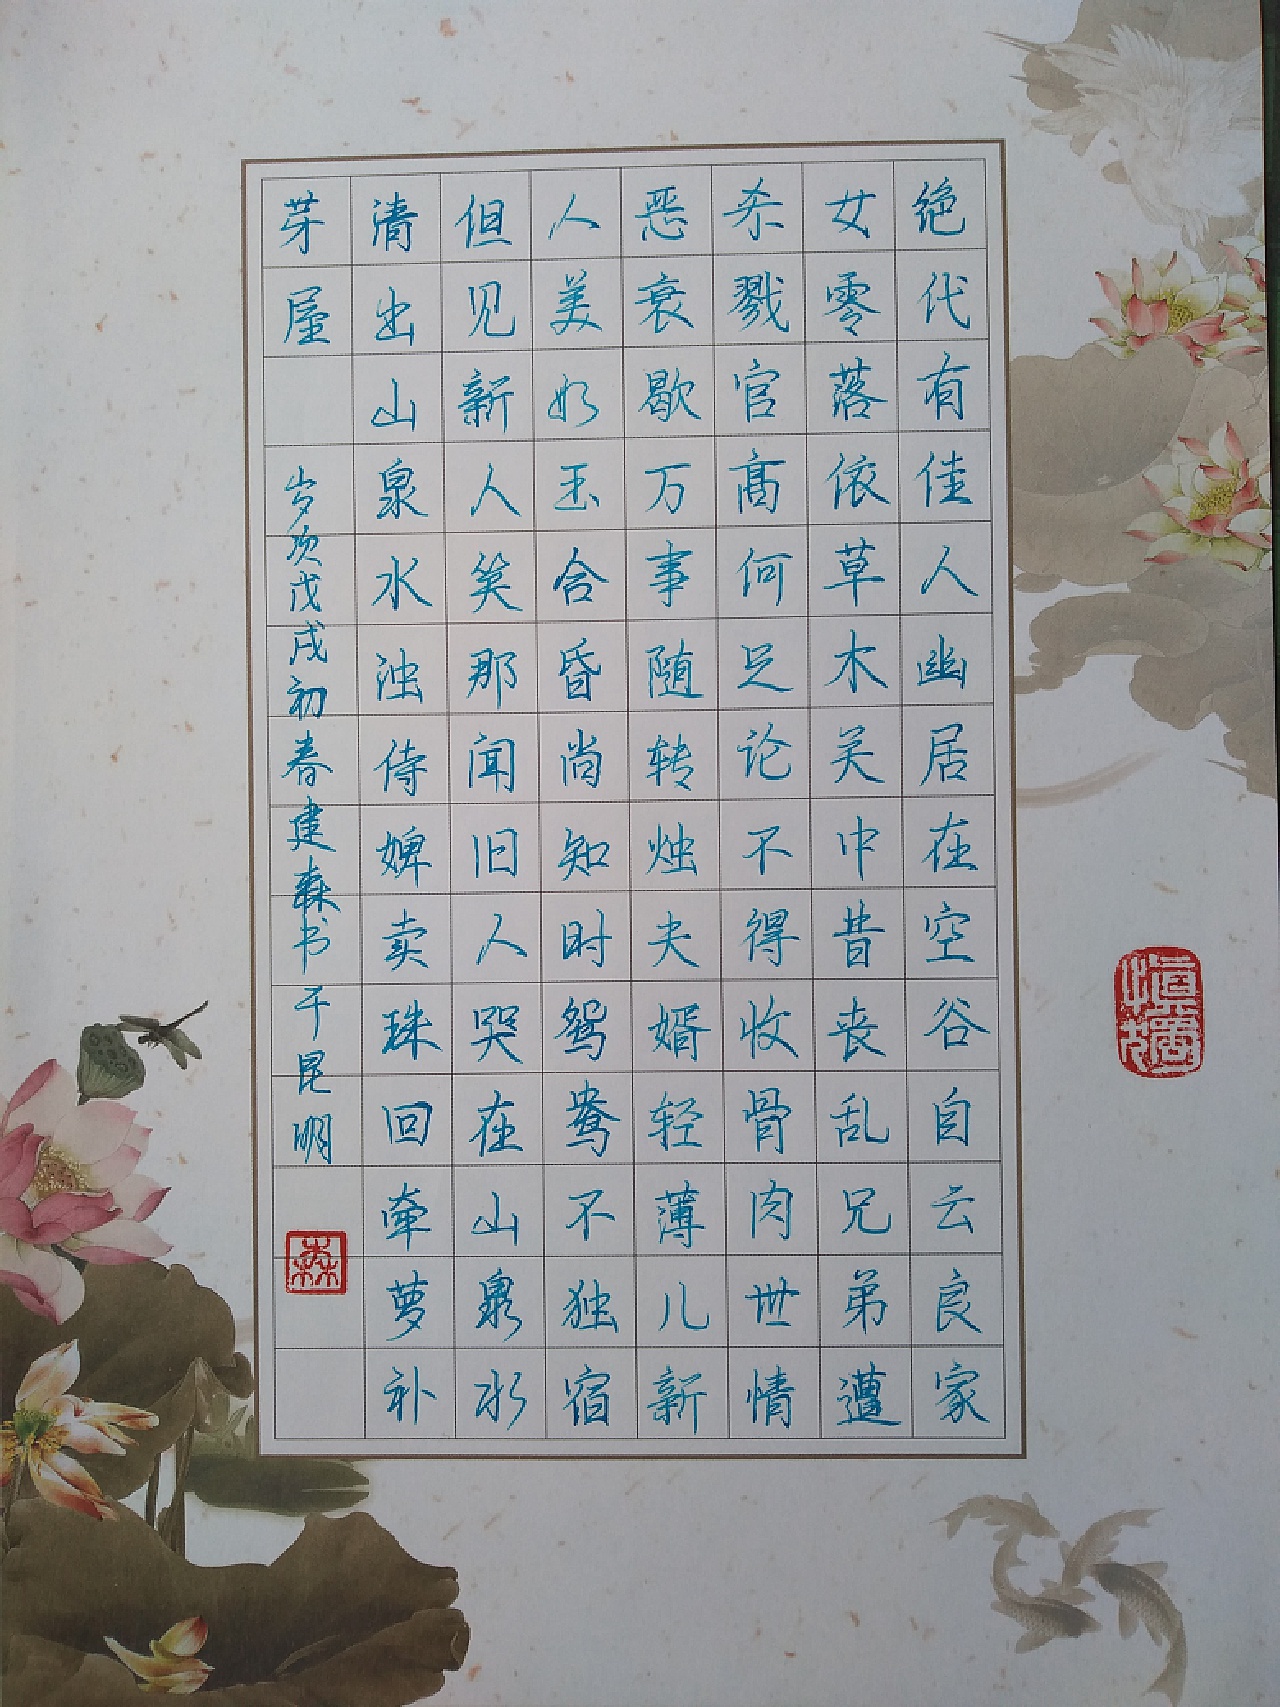 绝代有佳人幽居在空谷自云良家
女零落依草木关中昔丧乱兄弟遭
杀戮官高何足论不得收骨肉世情
恶衰歇万事随转烛夫婿轻薄儿新
人美如玉合昏尚知时鸳鸯不独宿
但见新人笑那闻旧人哭在山泉水
清出山泉水浊侍婢卖珠回牵萝补
茅屋
岁次戊戌初春建森书于昆明
森